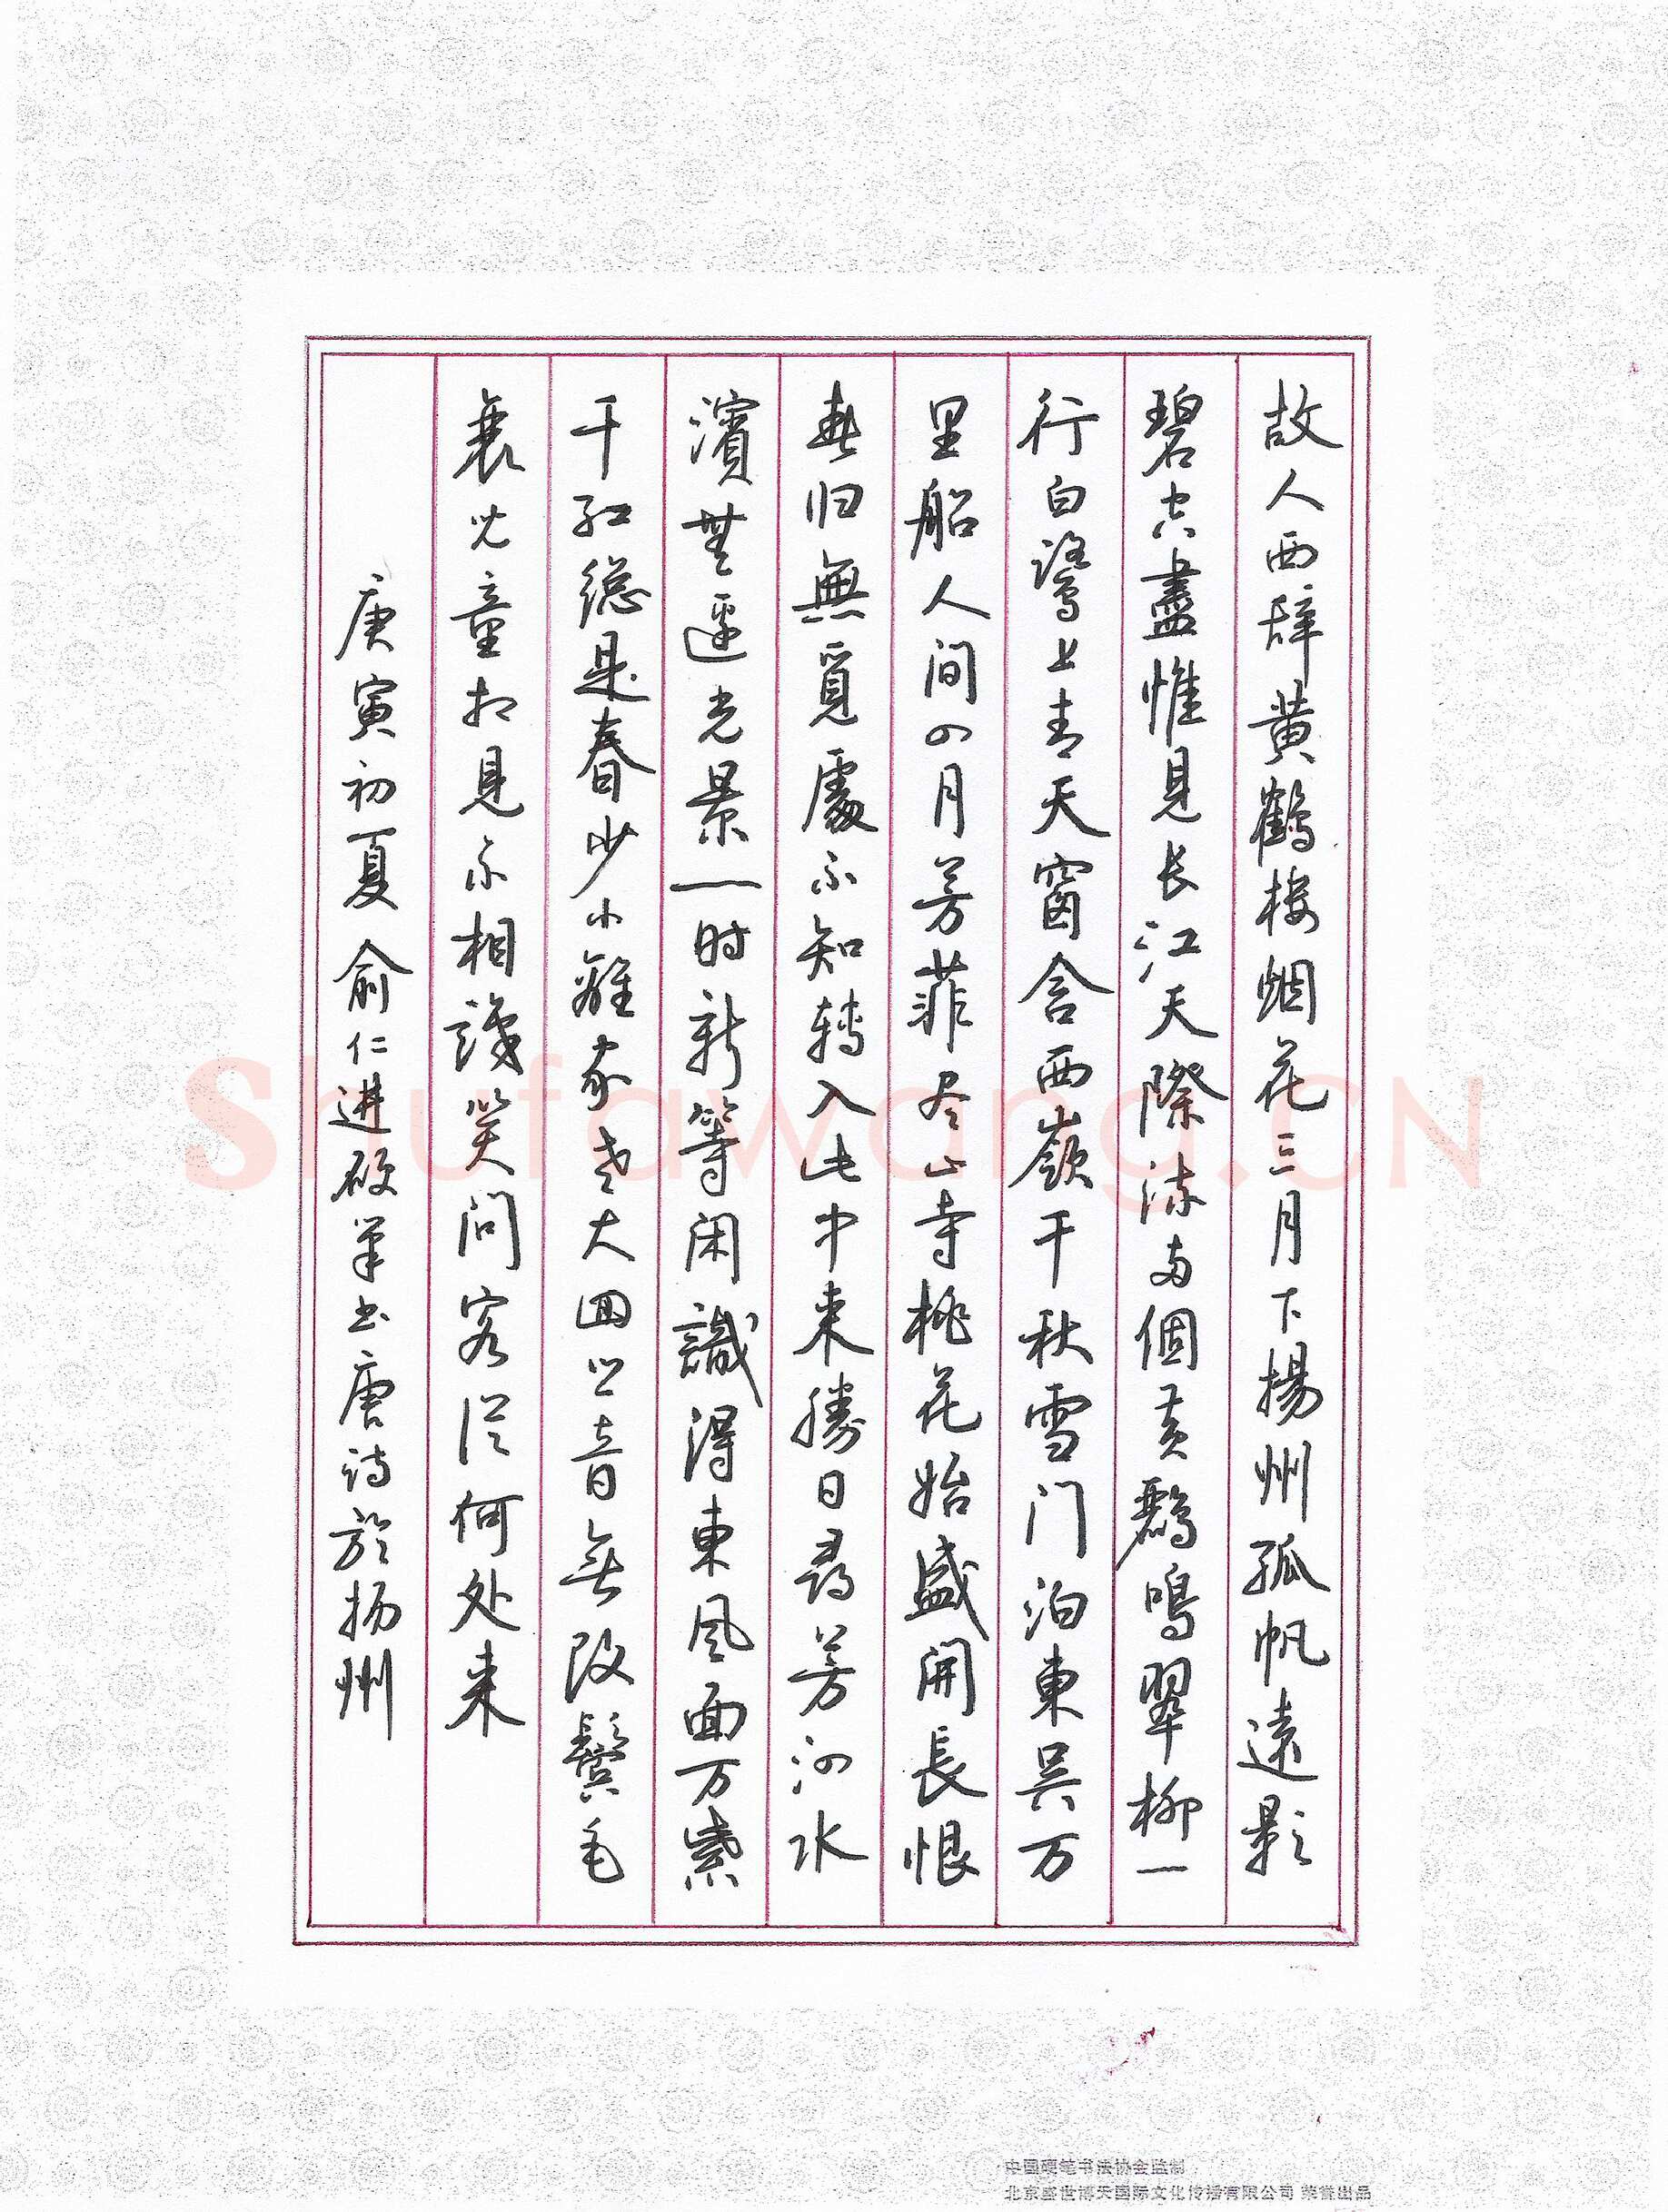 故人西辞黄鶴楼烟花三月下揚州孤帆遠影
碧空盡惟見长江天際流两個黄鸝鳴翠柳一
行白鷺上青天窗含西嶺千秋雪门泊東吴万
里船人间四月芳菲尽山寺桃花始盛開長恨
春归無覓處不知轉入此中来勝日尋芳泗水
濱無邊光景一时新等闲識得東风面万紫
千红總是春少小離家老大回乡音無改鬓毛
衰儿童相見不相識笑问客從何处来
庚寅初夏俞仁进硬笔书唐诗於扬州
Shufawang.CN
中国硬笔书法协会监制
北京盛世博天国际文化传播有限公司 荣誉出品